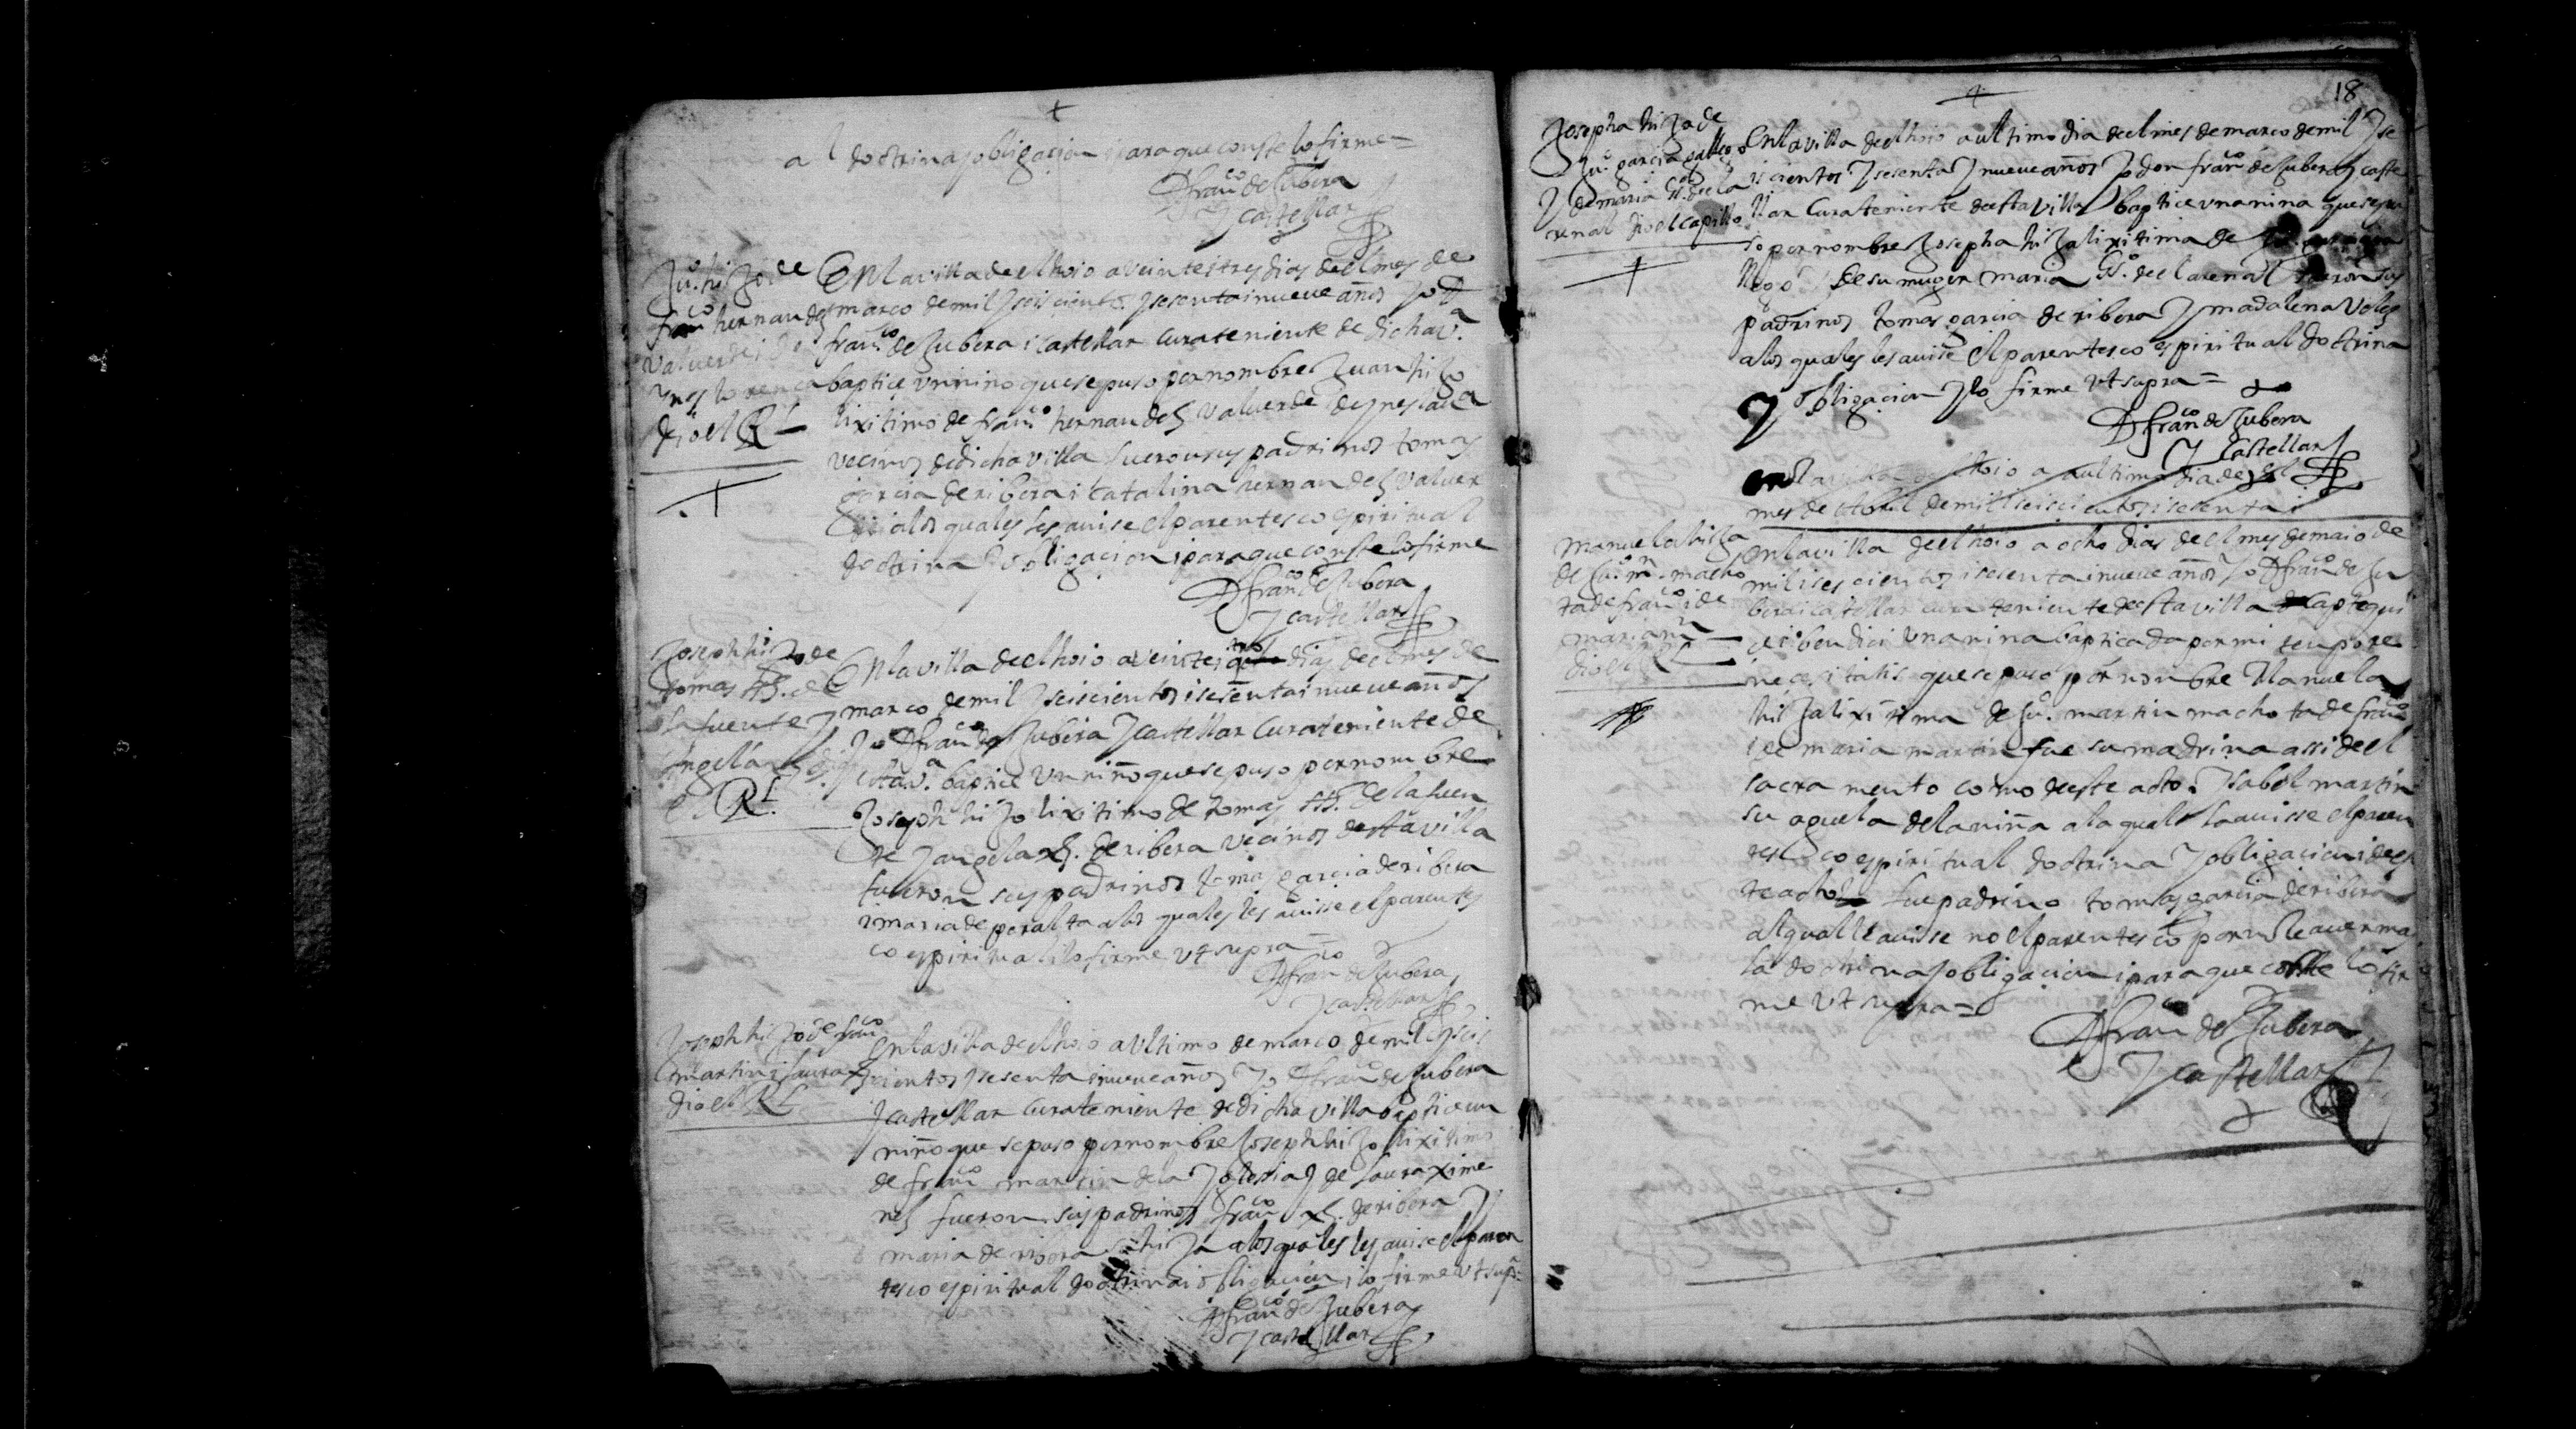 a l doctrina y obligacion i para que conste lo firme =
D franco de Zubera
y castellar
Juo. hijo de
franco hernandez
valuerde i de
ynes lorença
dio el Rl
En la villa de el hoio a veintei tres dias de el mes de
março de mil y seiscientos y sesenta i nueve años yo D
franco de Zubera i castellar cura teniente de dicha va.
baptice un nino que se puso por nombre Juan hijo
lixitimo de franco hernandez valuerde
vecinos de dicha villa fueron sus padrinos tomas
garcia de ribera i catalina hernandez valuer
a los quales les auise el parentesco espiritual
doctrina y obligacion i para que conste lo firme
D franco de Zubera
y castellar
Joseph hijo de
tomas
la fuente y
Angela
el Rl.
En la villa de el hoio a veintei tres dias de el mes de
março de mil y seiscientos i sesenta i nueve años
yo D franco de Zubera y castellar cura teniente de
esta va. baptice un niño que se puso por nombre
Joseph hijo lixitimo de tomas de la fuen
te y angela de ribera vecinos de esta villa
fueron sus padrinos tomas garcia de ribera
i maria de peralta a los quales les auisse el parentes
co espiritual i lo firme ut supra =
D franco de Zubera
y castellar
Joseph hijo de franco
martin i laura x
dio el Rl
En la villa de el hoio a ultimo de março de mil y seis
cientos y sesenta i nueve años yo D franco de Zubera
y castellar cura teniente de dicha villa baptice un
niño que se puso por nombre Joseph hijo lixitimo
de franco martin de la yglessia y de laura xime
nez fueron sus padrinos franco de ribera y
maria de ribera su hija a los quales les auise el paren
tesco espiritual doctrina i obligacion i lo firme ut supra =
D franco de Zubera
y castellar
18
Josepha hija de
Juo. garcia gallego
y de maria de el a
renal dio el capillo
En la villa de el hoio a ultimo dia de el mes de março de mil y se
iscientos y sesenta y nueve años yo don franco de Zubera y caste
llar cura teniente de esta villa baptice una nina que se pu
so por nombre Josepha hija lixitima de
llego y de su muger maria de el arenal fueron sus
padrinos tomas garcia de ribera y madalena velez
a los quales les auise el parentesco espiritual doctrina
y obligacion y lo firme ut supra =
D franco de Zubera
y castellar
en la villa de el hoio a ultimo dia de el
mes de Abril de mill seiscientos i sesenta i
Manuela hija
de Juo. mn. macho
ta de franco i de
maria mn
dio el Rl
En la villa de el hoio a ocho dias de el mes de maio de
mil i seiscientos i sesenta i nueve años yo D franco de Zu
bera i castellar cura teniente de esta villa
i bendici una nina bapticada por mi tenpore
necesitatis que se puso por nonbre Manuela
hija lixitima de Juo. martin machota de franco
i de maria martin fue su madrina assi de el
sacramento como de este acto Ysabel martin
su aguela de la niña a la qual la auisse el paren
tesco espiritual doctrina y obligacion i de es
te acto fue padrino tomas garcia de ribera
al qual le auisse no el parentesco por no le auer mas
la doctrina y obligacion i para que conste lo fir
me ut supra =
D franco de Zubera
y castellar